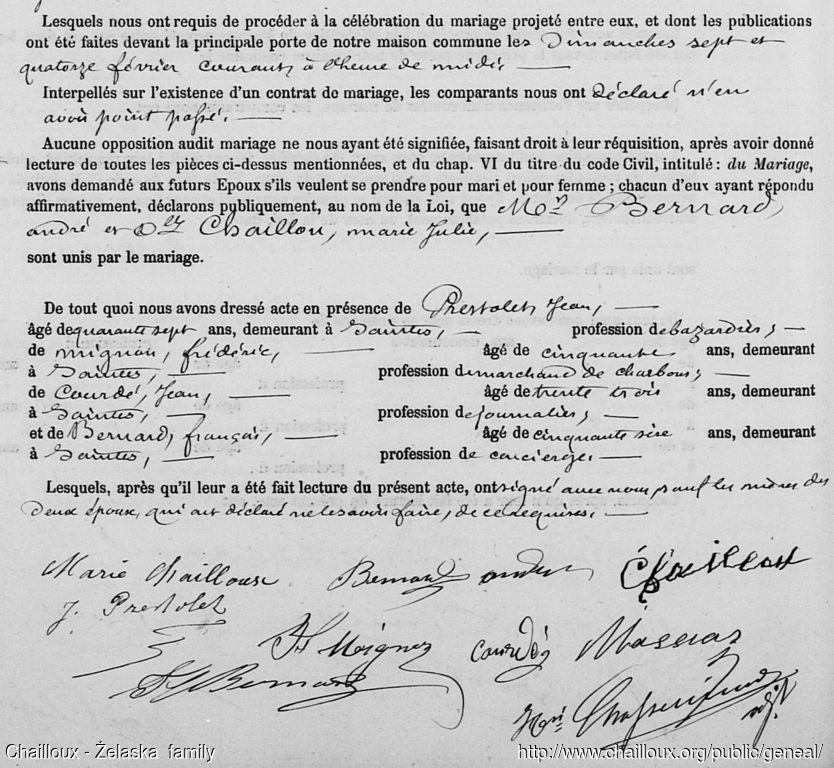 Lesquels nous ont requis de procéder à la célébration du mariage projeté entre eux, et dont les publications
ont été faites devant la principale porte de notre maison commune les Dimanches sept et
quatorze février courant, à l'heure de midi,
Interpellés sur l'existence d'un contrat de mariage, les comparants nous ont déclaré n'en
avoir point passé.
Aucune opposition audit mariage ne nous ayant été signifiée, faisant droit à leur réquisition, après avoir donné
lecture de toutes les pièces ci-dessus mentionnées, et du chap. VI du titre du code Civil, intitulé : du Mariage,
avons demandé aux futurs Epoux s'ils veulent se prendre pour mari et pour femme ; chacun d'eux ayant répondu
affirmativement, déclarons publiquement, au nom de la Loi, que Mr Bernard,
andré et Dlle Chaillou, marie Julie,
sont unis par le mariage.
De tout quoi nous avons dressé acte en présence de Prestolet, Jean,
âgé de quarante sept ans, demeurant à Saintes, profession de
de mignon, frédéric, âgé de cinquante ans, demeurant
à Saintes, profession de marchand de charbons,
de Courdé, Jean, âgé de trente trois ans, demeurant
à Saintes, profession de journalier,
et de Bernard, françois, âgé de cinquante seize ans, demeurant
à Saintes, profession de concierge.
Lesquels, après qu'il leur a été fait lecture du présent acte, ont signé avec nous, sauf les mères des
deux époux, qui ont déclaré ne le savoir faire, de ce requises.
Marie Chailloux Bernard andré Chailloux
J. Prestolet
Courdé
Bernard
Chailloux - Żelaska family http://www.chailloux.org/public/geneal/